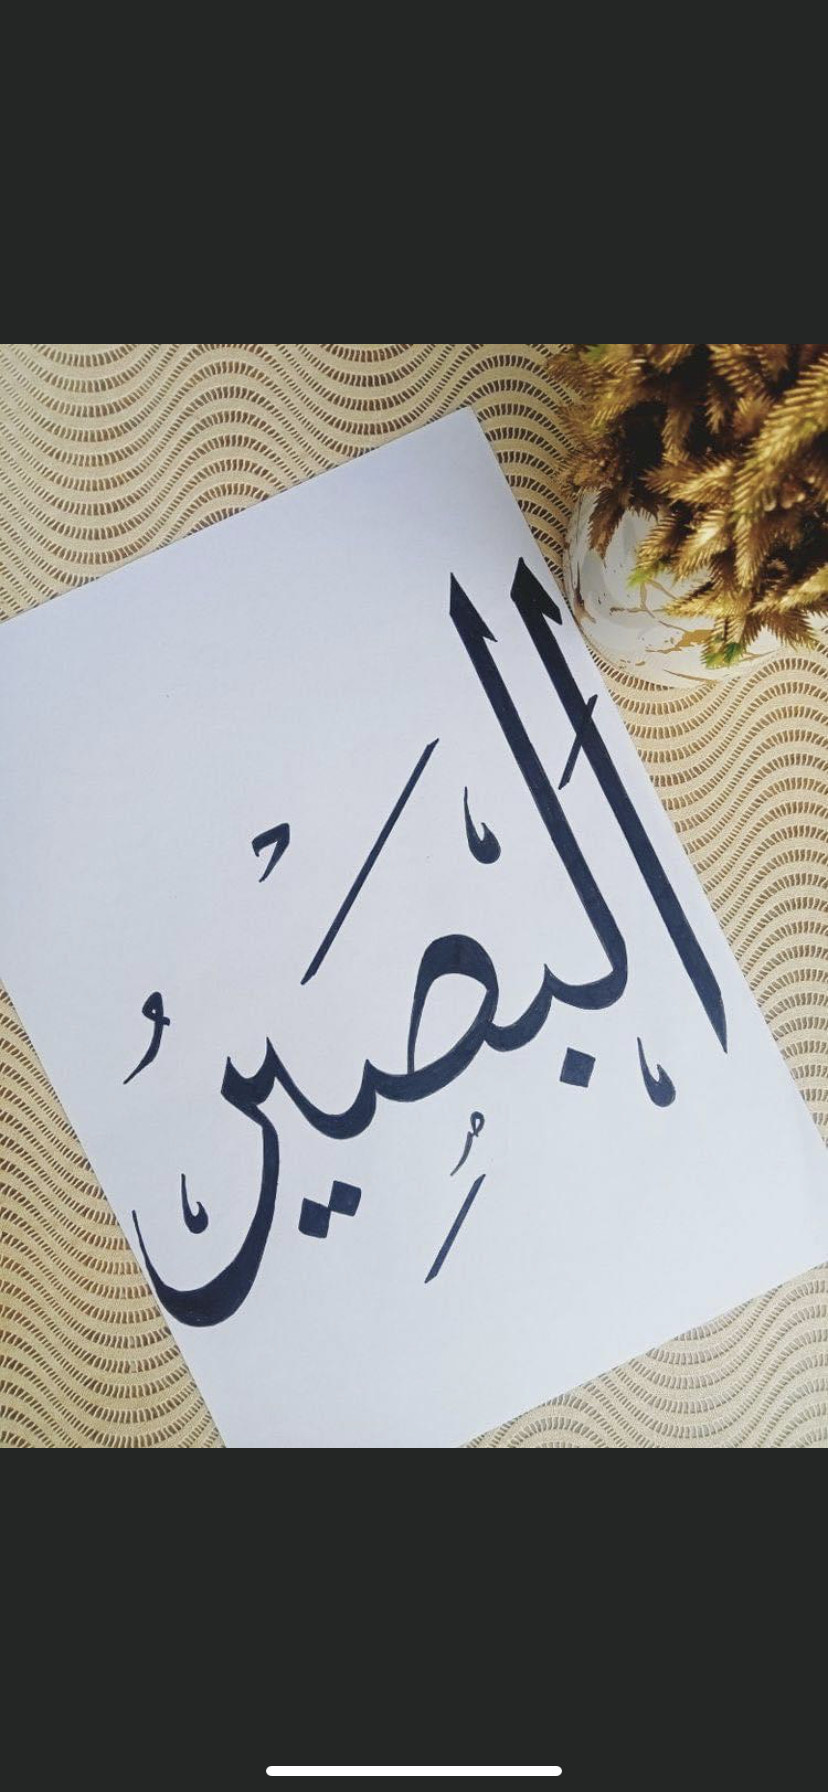 البَصِيرُ